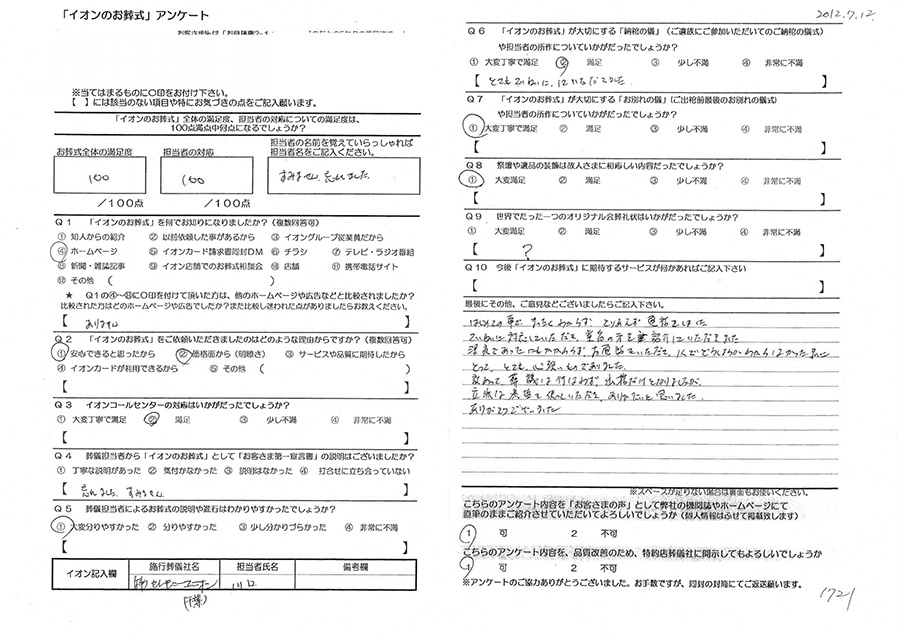 「イオンのお葬式」アンケート
※当てはまるものに○印をお付け下さい。
【 】には該当のない項目や特にお気づきの点をご記入願います。
「イオンのお葬式」全体の満足度、担当者の対応についての満足度は、
100点満点中何点になるでしょうか？
お葬式全体の満足度
100
/100点
担当者の対応
100
/100点
担当者の名前を覚えていらっしゃれば
担当者名をご記入ください。
すみません 忘れました
Q1 「イオンのお葬式」を何でお知りになりましたか？（複数回答可）
① 知人からの紹介 ② 以前依頼した事があるから ③ イオングループ従業員だから
④ ホームページ ⑤ イオンカード請求書同封DM ⑥ チラシ ⑦ テレビ・ラジオ番組
⑧ 新聞・雑誌記事 ⑨ イオン店舗でのお葬式相談会 ⑩ 店舗 ⑪ 携帯電話サイト
⑫ その他 （ ）
★ Q1の④～⑬に○印を付けて頂いた方は、他のホームページや広告などと比較されましたか？
比較された方はどのホームページや広告でしたか？また比較し迷われた点がありましたらお教えください。
【 ありません 】
Q2 「イオンのお葬式」をご依頼いただきましたのはどのような理由からですか？（複数回答可）
① 安心できると思ったから ② 価格面から（明瞭さ） ③ サービスや品質に期待したから
④ イオンカードが利用できるから ⑤ その他 （ ）
【 】
Q3 イオンコールセンターの対応はいかがだったでしょうか？
① 大変丁寧で満足 ② 満足 ③ 少し不満 ④ 非常に不満
【 】
Q4 葬儀担当者から「イオンのお葬式」として「お客さま第一宣言書」の説明はございましたか？
① 丁寧な説明があった ② 気付かなかった ③ 説明はなかった ④ 打合せに立ち会っていない
【 忘れました すみません 】
Q5 葬儀担当者によるお葬式の説明や進行はわかりやすかったでしょうか？
① 大変分りやすかった ② 分りやすかった ③ 少し分りづらかった ④ 非常に不満
【 】
イオン記入欄
施行葬儀社名
担当者氏名
備考欄
川口
(千葉)
2012.7.12
Q6 「イオンのお葬式」が大切にする「納棺の儀」（ご遺族にご参加いただいてのご納棺の儀式）
や担当者の所作についていかがだったでしょうか？
① 大変丁寧で満足 ② 満足 ③ 少し不満 ④ 非常に不満
【 とてもていねいに、していただきました 】
Q7 「イオンのお葬式」が大切にする「お別れの儀」（ご出棺前最後のお別れの儀式）
や担当者の所作についていかがだったでしょうか？
① 大変丁寧で満足 ② 満足 ③ 少し不満 ④ 非常に不満
【 】
Q8 祭壇や遺品の装飾は故人さまに相応しい内容だったでしょうか？
① 大変満足 ② 満足 ③ 少し不満 ④ 非常に不満
【 】
Q9 世界でたった一つのオリジナル会葬礼状はいかがだったでしょうか？
① 大変満足 ② 満足 ③ 少し不満 ④ 非常に不満
【 ? 】
Q10 今後「イオンのお葬式」に期待するサービスが何かあればご記入下さい
【 】
最後にその他、ご意見などございましたらご記入下さい。
はじめての事で まったくわからず とりあえず 電話をしました
ていねいに対応していただき
とって、とても 心強いものでありました。
ありがとうございました
※スペースが足りない場合は裏面もお使いください。
こちらのアンケート内容を「お客さまの声」として弊社の機関誌やホームページにて
直筆のままご紹介させていただいてよろしいでしょうか（個人情報はふせて掲載致します）
1 可 2 不可
こちらのアンケート内容を、品質改善のため、特約店葬儀社に開示してもよろしいでしょうか
1 可 2 不可
※アンケートのご協力ありがとうございました。お手数ですが、同封の封筒にてご返送願います。
1721